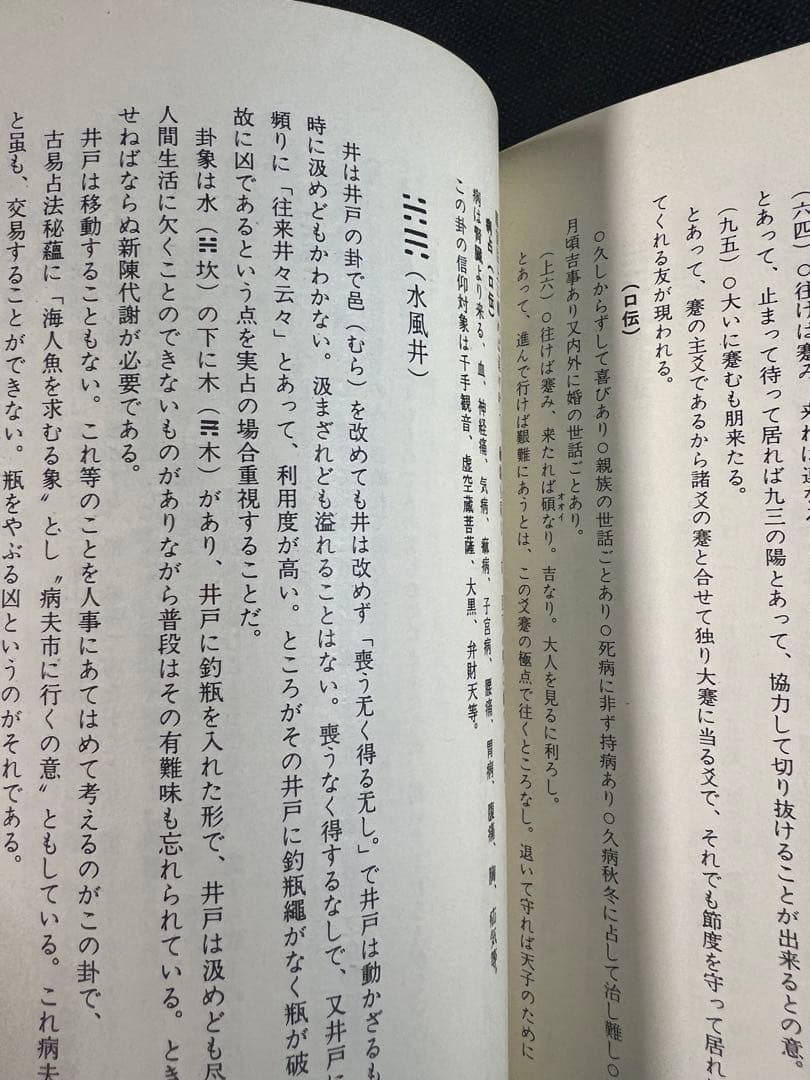 (六四)○往けば蹇み、来れば連な
とあって、止まって待って居れば九三の陽とあって、協力して切り抜けることが出来るとの意。
(九五)○大いに蹇むも朋来たる。
とあって、蹇の主爻であるから諸爻の蹇と合せて独り大蹇に当る爻で、それでも節度を守って居れ
てくれる友が現われる。
(口伝)
○久しからずして喜びあり○親族の世話ごとあり○死病に非ず持病あり○久病秋冬に占して治し難し○
月頃吉事あり又内外に婚の世話ごとあり。
(上六)○往けば蹇み、来たれば碩なり。吉なり。大人を見るに利ろし。
オオイ
とあって、進んで行けば艱難にあうとは、この爻蹇の極点で往くところなし。退いて守れば天子のために
病占(口伝)
病は腎臓より来る、血、神経痛、気病、痲病、子宮病、腰痛、胃病、腹痛、胸、
この卦の信仰対象は千手観音、虚空蔵菩薩、大黒、弁財天等。
(水風井)
井は井戸の卦で邑(むら)を改めても井は改めず「喪う無く得る無し。」で井戸は動かざるも
時に汲めどもかわかない。汲まざれども溢れることはない。喪うなく得するなしで、又井戸に
頻りに「往来井々云々」とあって、利用度が高い。ところがその井戸に釣瓶縄がなく瓶が破
故に凶であるという点を実占の場合重視することだ。
卦象は水(☵坎)の下に木(☴木)があり、井戸に釣瓶を入れた形で、井戸は汲めども尽
人間生活に欠くことのできないものがありながら普段はその有難味も忘れられている。とき
せねばならぬ新陳代謝が必要である。
井戸は移動することもない。これ等のことを人事にあてはめて考えるのがこの卦で、
古易占法秘蘊に「海人魚を求むる象〃とし〝病夫市に行くの意〃ともしている。これ病夫
と虽も、交易することができない。瓶をやぶる凶というのがそれである。